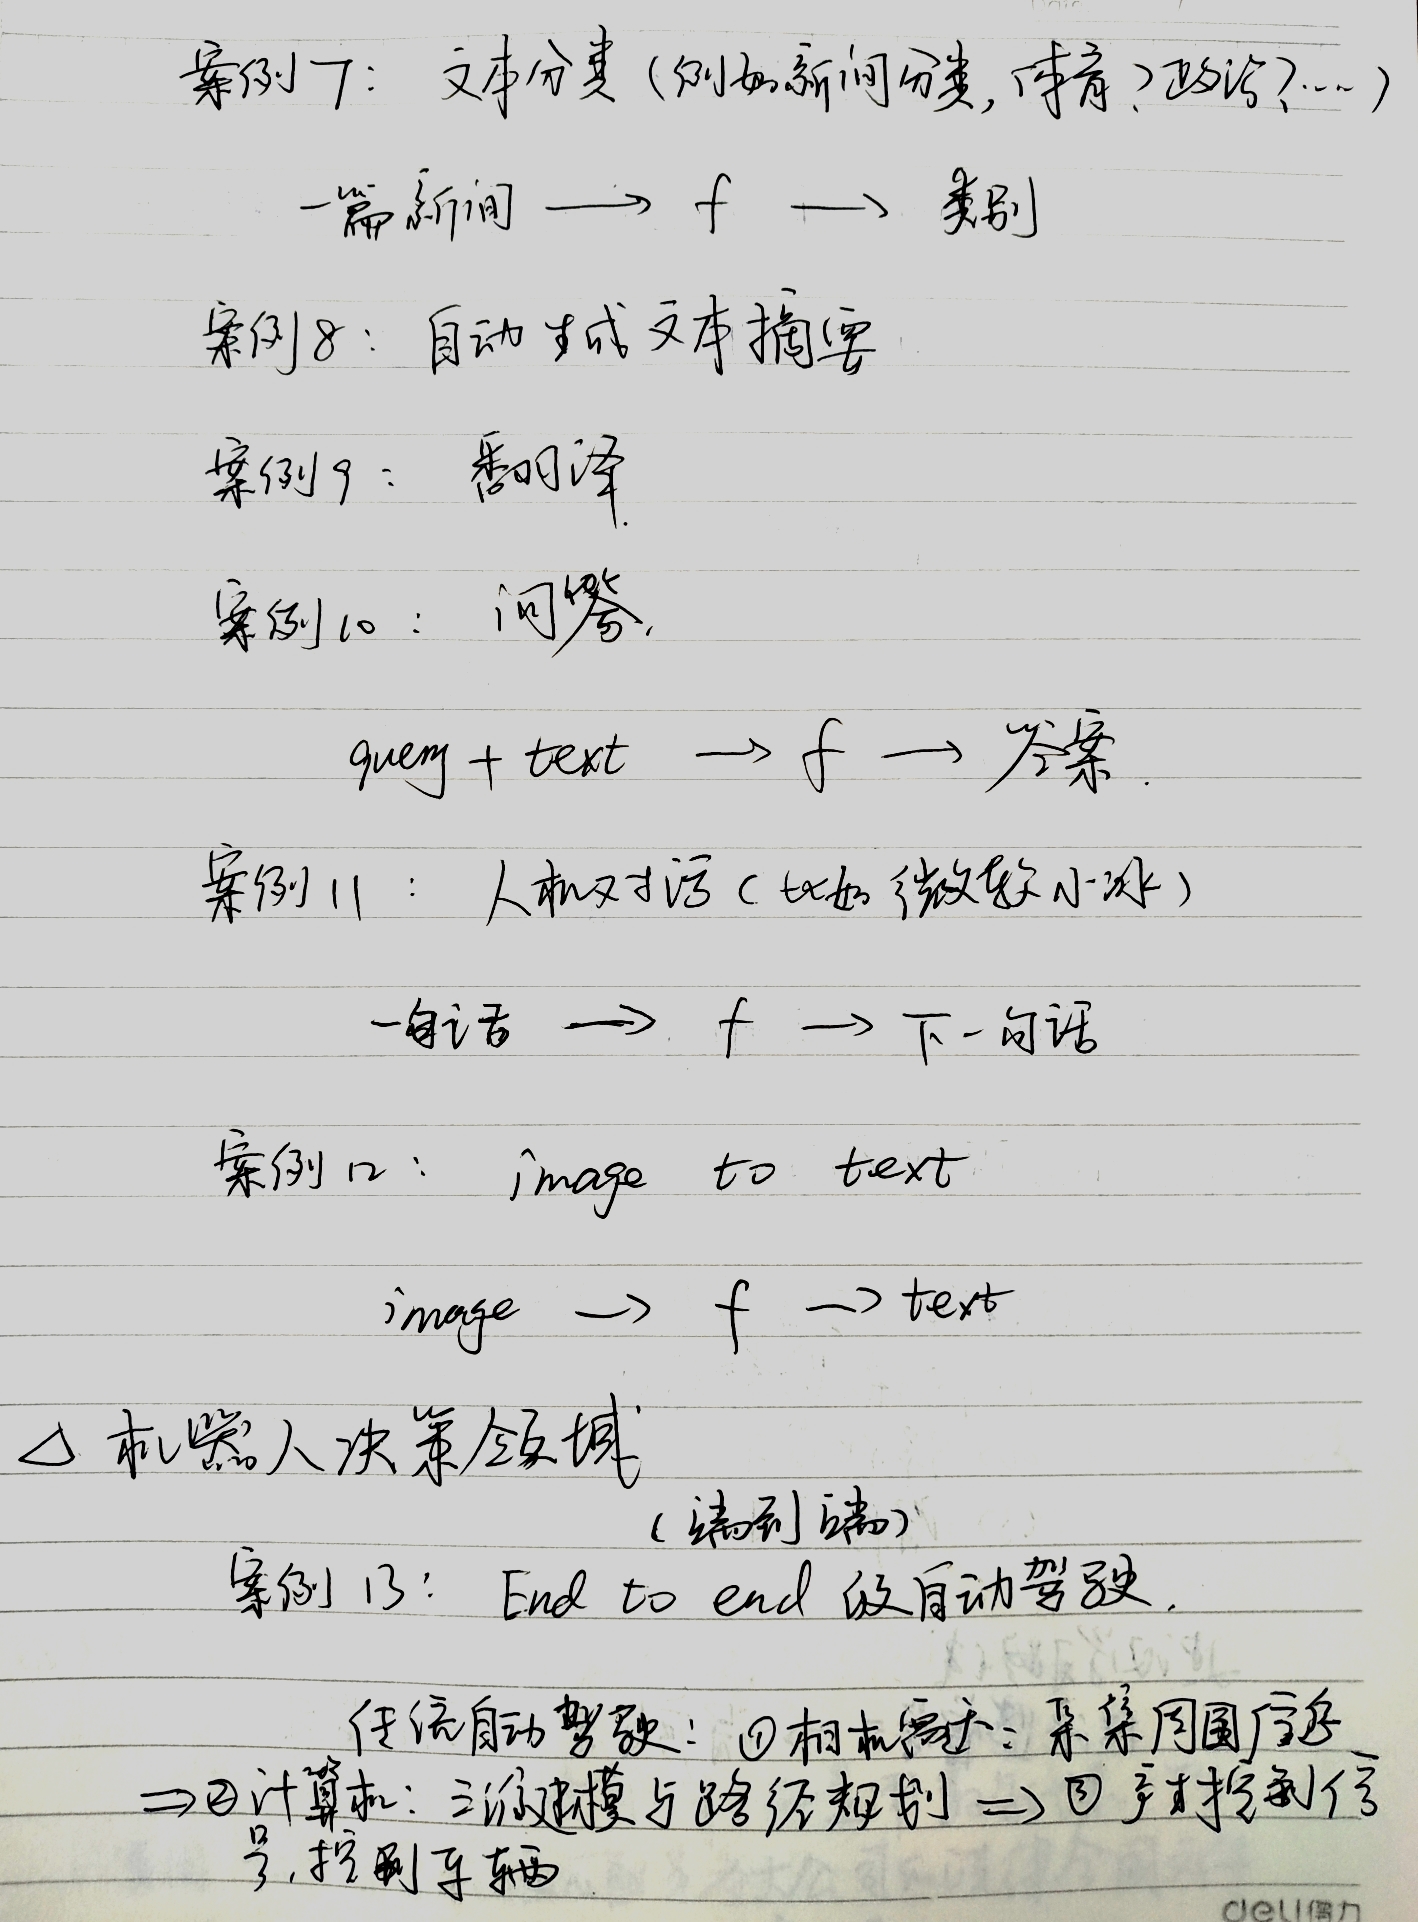 案例7: 文本分类(例如新闻分类,体育?政治?……)
一篇新闻 → f → 类别
案例8: 自动生成文本摘要
案例9: 翻译.
案例10: 问答.
query + text → f → 答案.
案例11: 人机对话(比如微软小冰)
一句话 → f → 下一句话
案例12: image to text
image → f → text
△ 机器人决策领域
(端到端)
案例13: End to end 的自动驾驶.
传统自动驾驶: ①相机雷达: 采集周围信息
⇒②计算机: 三维建模与路径规划 ⇒ ③ 产生控制信
号,控制车辆
deli得力